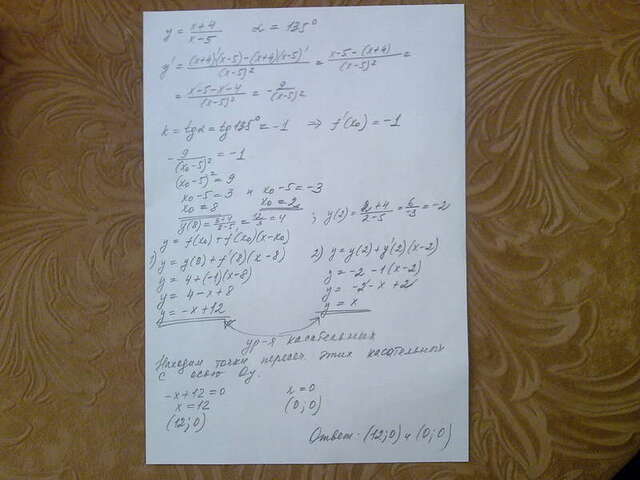 y = (x+4)/(x-5)   α = 135°
y' = ((x+4)'(x-5)-(x+4)(x-5)')/(x-5)² = (x-5-(x+4))/(x-5)² =
= (x-5-x-4)/(x-5)² = -9/(x-5)²
k = tgα = tg135° = -1 ⇒ f'(x₀) = -1
-9/(x₀-5)² = -1
(x₀-5)² = 9
x₀-5 = 3 и x₀-5 = -3
x₀ = 8   x₀ = 2
y(8) = (8+4)/(8-5) = 12/3 = 4 ; y(2) = (2+4)/(2-5) = 6/-3 = -2
y = f(x₀) + f'(x₀)(x-x₀)
1) y = y(8) + f'(8)(x-8)
y = 4+(-1)(x-8)
y = 4-x+8
y = -x+12
2) y = y(2)+y'(2)(x-2)
y = -2-1(x-2)
y = -2-x+2
y = x
ур-я касательных
Находим точки пересеч. этих касательных
с осью Oy.
-x+12=0   x=0
x=12   (0;0)
(12;0)
Ответ: (12;0) и (0;0)